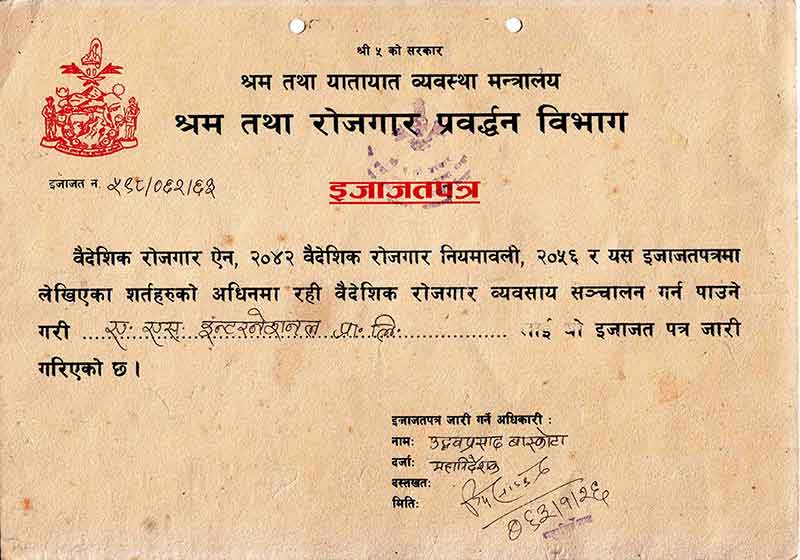 श्री ५ को सरकार
श्रम तथा यातायात व्यवस्था मन्त्रालय
श्रम तथा रोजगार प्रवर्द्धन विभाग
इजाजत न. ५९८/०६२/६३
इजाजतपत्र
वैदेशिक रोजगार ऐन, २०४२ वैदेशिक रोजगार नियमावली, २०५६ र यस इजाजतपत्रमा
लेखिएका शर्तहरुको अधिनमा रही वैदेशिक रोजगार व्यवसाय सञ्चालन गर्न पाउने
गरी ए. एस. इन्टरनेशनल प्रा. लि. लाई यो इजाजत पत्र जारी
गरिएको छ ।
इजाजतपत्र जारी गर्ने अधिकारी :
नामः उद्धवप्रसाद बास्कोटा
दर्जाः महानिर्देशक
दस्तखतः
मितिः ०६३/१/२६